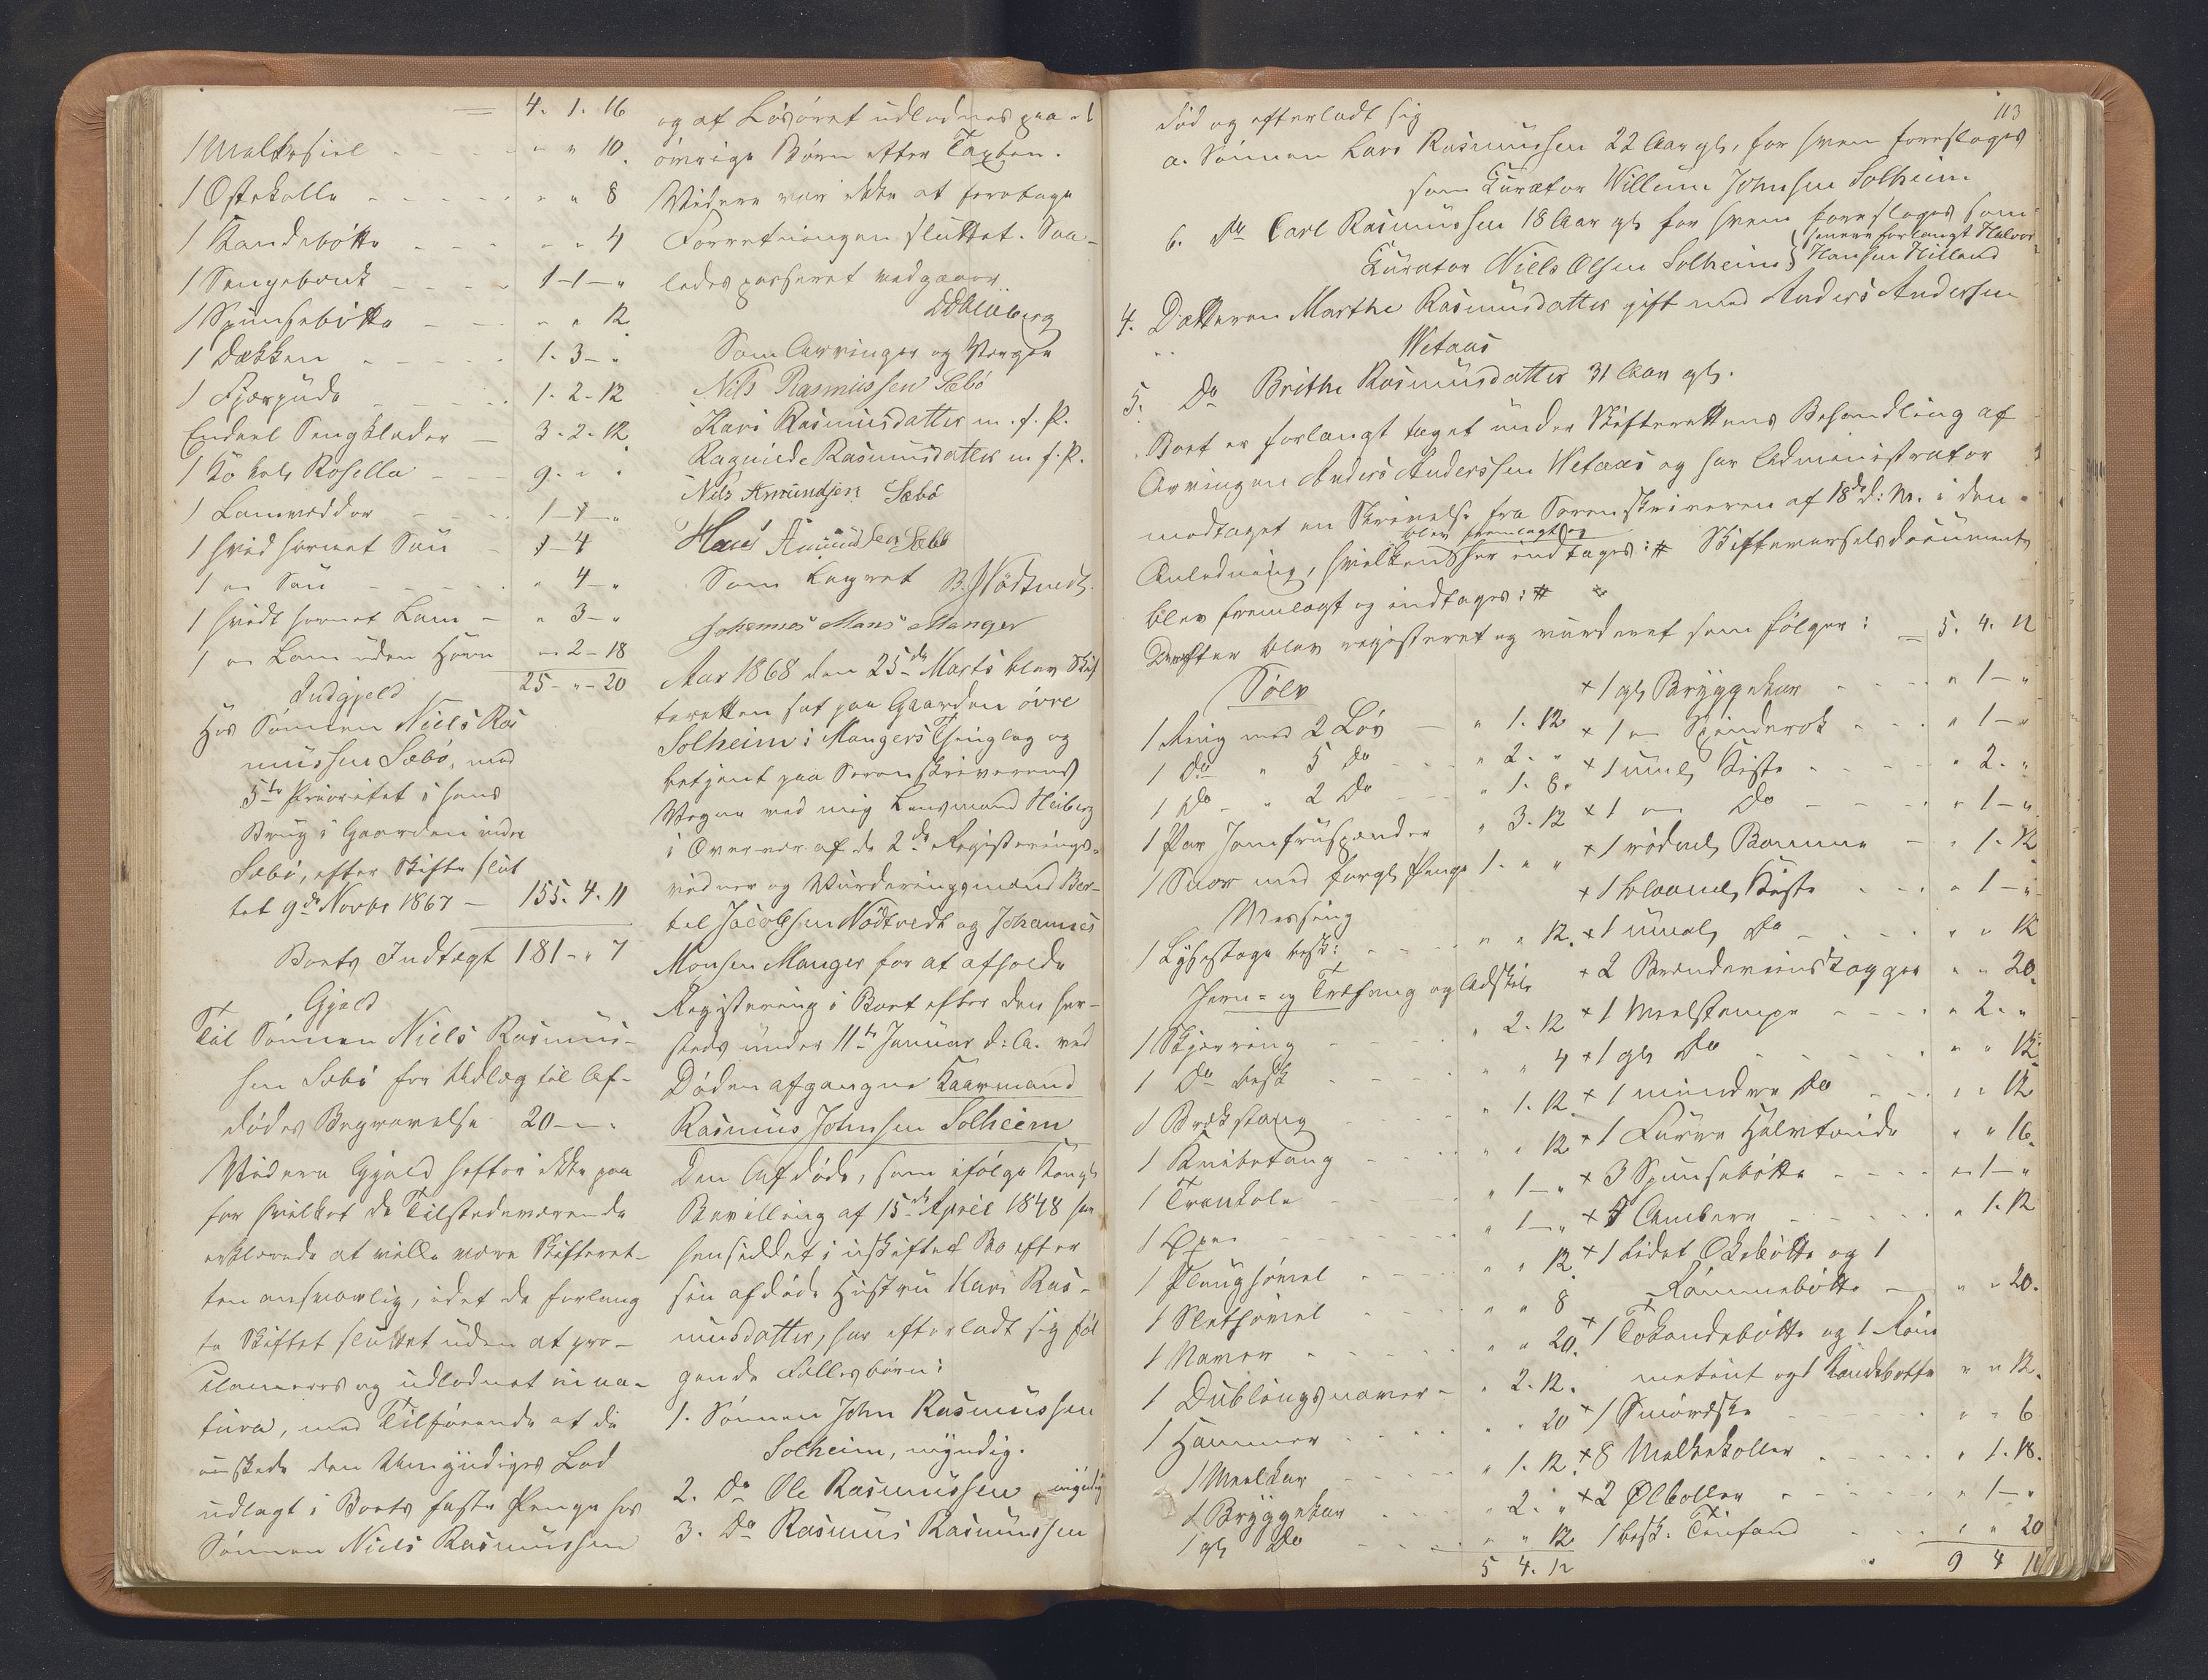 4. 1. 16
1 Malkesiel - - - " " 10.
1 Ostekolle - - - " " 8
1 Vandbøtte - - - " " 4
1 Sengebænk - - - 1-1-"
1 Spunsebøtte - - " " 12
1 Dækken - - - 1. 3-"
1 Fjærpude - - - 1. 2-12
Endeel Sengklæder - 3-2-12
1 Ko kaldt Rosella - - - 9. " "
1 Lamvedder - - -
1 hvid hornet Sau - " 4
1 " Sau - - - " 4-"
1 hvidt hornet Lam - " 3-"
1 " Lam uden Horn " 2-18
25-"-20
Indgjeld
Hos Sønnen Niels Ras
mussen Sæbø, med
5te Prioritet i hans
Brug i Gaarden indre
Sæbø, efter Skifte slut
tet 9de Novbr 1867 - 155. 4. 11
Boets Indtægt 181-"7
Gjeld
Til Sønnen Niels Rasmus-
sen Sæbø for Udlæg til Af-
dødes Begravelse 20-"-"
Videre Gjeld hefter ikke paa
for hvilket de Tilstedeværende
erklærede at ville være Skifteret-
ten ansvarlig, idet de forlang
te Skiftet sluttet uden at pro-
clameres og udlodnet in na-
tura, med Tilførende at de
ønskede den Umyndiges Lod
udlagt i Boets faste Penge hos
Sønnen Niels Rasmussen
og af Løsøret udlodnes paa de
øvrige Børn efter Taxten.
Videre var ikke at foretage
Forretningen sluttet. Saa-
ledes passeret vedgaaer
Heiberg
Som Arvinger og Værger
Nils Rasmussen Sæbø
Kari Rasmusdatter m. f. P.
Ragnilde Rasmusdatter m f. P.
Nils Amundsen Sæbø
Hans Amundsen Sæbø
Som Lagret B. J Nødtvedt.
Johannes Mons Manger
Aar 1868 den 25de Marts blev Skif
teretten sat paa Gaarden øvre
Solheim i Mangers Thinglag og
betjent paa Sorenskriverens
Vegne ved mig Lensmand Heiberg
i Overvær af de 2de Registerings-
vidner og Vurderingsmænd Ber-
tel Jacobsen Nødtvedt og Johannes
Monsen Manger for at afholde
Registering i Boet efter den her-
steds under 11te Januar d: A. ved
Døden afgangne Kaarmand
Rasmus Johnsen Solheim
Den Afdøde, som ifølge Kongl
Bevilling af 15de April 1848 har
hensiddet i uskiftet Bo efter
sin afdøde Hustru Kari Ras-
musdatter, har efterladt sig føl
gende Fællesbørn:
1. Sønnen John Rasmussen
Solheim, myndig.
2. Do Ole Rasmussen, myndig
3. Do Rasmus Rasmussen
113
død og efterladt sig
a. Sønnen Lars Rasmussen 22 Aar gl, for hvem foreslages
som Curator Willum Johnsen Solheim
b. Do Carl Rasmussen 18 Aar gl for hvem foreslages som
Curator Niels Olsen Solheim } senere forlangt Halvor
Hansen Hilland
4. Datteren Marthe Rasmusdatter gift med Anders Andersen
Wetaas
5. Do Brithe Rasmusdatter 31 Aar gl.
Boet er forlangt taget under Skifterettens Behandling af
Arvingen Anders Andersen Wetaas og har Administrator
modtaget en Skrivelse fra Sorenskriveren af 18de d: M. i den
blev fremlagt og
Anledning, hvilken her indtages: # Skifteværselsdocument
blev fremlagt og indtages: #
Derefter blev registeret og vurderet som følger:
Sølv
1 Ring med 2 Løv - " 1. 12
1 Do " 5 Do - - " 2. "
1 Do - " 2 Do - - " 1. 8.
1 Par Jomfruspænder " 3. 12
1 Snor med forgl Penge 1. " "
Messing
1 Lysestage besk: - - " " 12.
Jern- og Træfang og Adskil
1 Skjæring - - - " 2. 12
1 Do besk - - - " " 4
1 Brækstang - - - " 1. 12.
1 Knibetang - - - " " 12
1 Trankole - - - " 1-"
1 Øxe - - - " 1-"
1 Plaughøvel - - - " " 12.
1 Slethøvel - - - " " 8
1 Naver - - - " " 20.
1 Dublingsnaver - " 2. 12.
1 Hammer - - - " " 20
1 Meelkar - - - " 1. 12.
1 Bryggekar - - - " 2. "
1 gl Do - - - " " 12.
5 4. 12
- 5. 4. 12
+ 1 gl Bryggekar - - - " 1-"
+ 1 " Spinderok - - - " 1-"
+ 1 uml Kiste - - - " 2. "
+ 1 " Do - - - " 1-"
+ 1 rødml Bomme - " 1. 12
+ 1 blaaml Kiste - - " 1-"
+ 1 umal Do - - - " " 12
+ 2 Brændeviinstagger " " 20.
+ 1 Meelstampe - - - " 2. "
+ 1 gl Do - - - " " 12.
+ 1 mindre Do - - " " 12
+ 1 Furre Halvtønde " " 16.
+ 3 Spunsebøtte - - - " 1-"
+ 5 Ambere - - - " 1. 12
+ 1 lidet Ølebøtte og 1
Rømmebøtte - " " 20.
+ 1 Tokandebøtte og 1 Røm
og 1 Kandebøtte " " 12.
+ 1 Smørdske - - - " " 6
+ 8 Melkekoller - - - " 1. 18.
+ 2 Ølboller - - - " 1-"
1 besk: Tinfad - - - " " 20
9 4 10